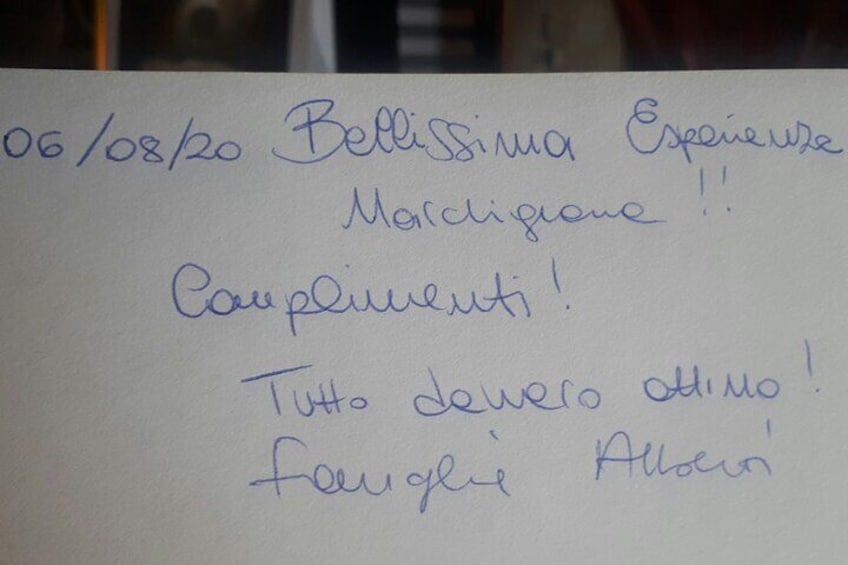 06/08/20 Bellissima Esperienza
Marchigiana !!
Complimenti!
Tutto davvero ottimo!
famiglia